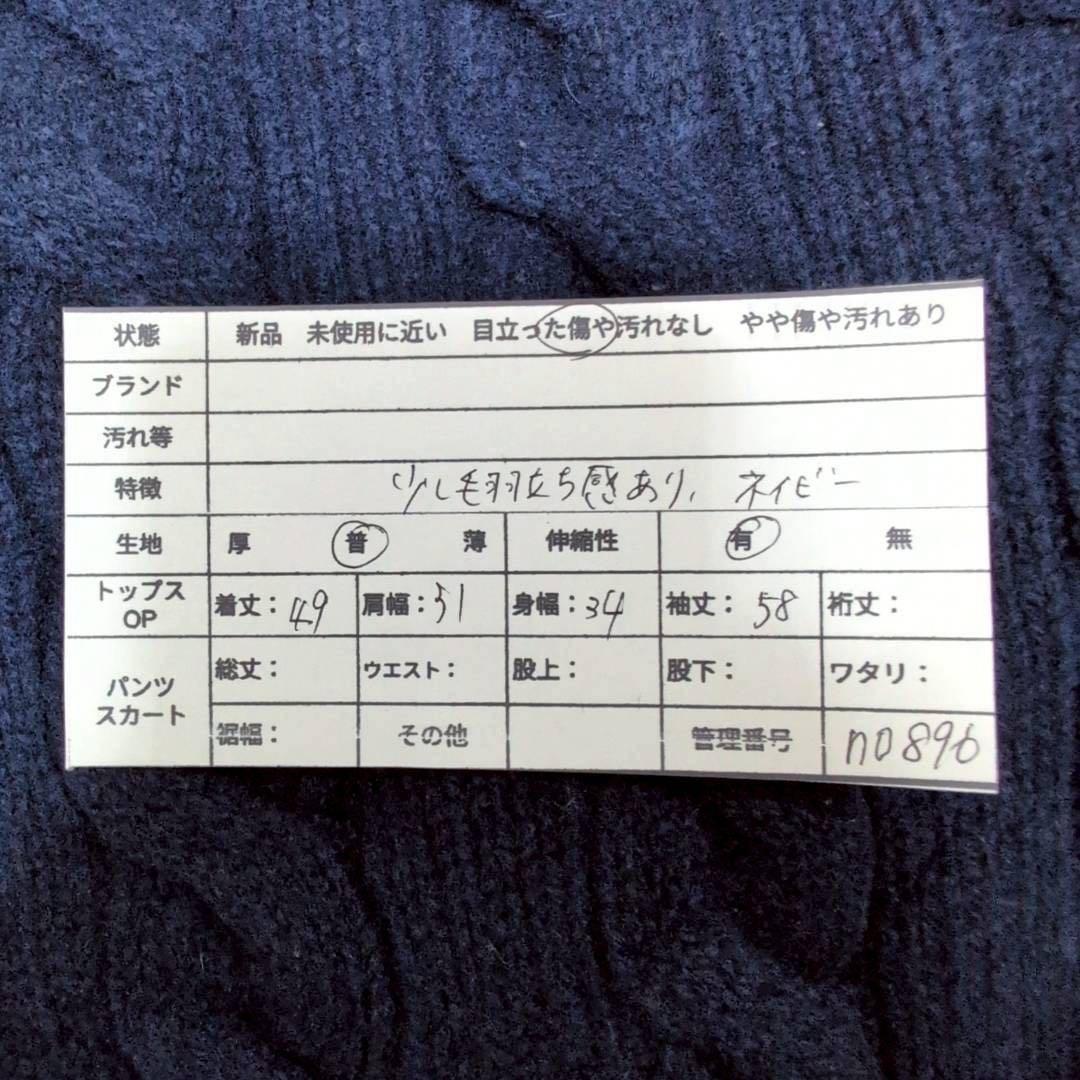 状態 新品 未使用に近い 目立った傷や汚れなし やや傷や汚れあり
ブランド
汚れ等
特徴 少し毛羽立ち感あり、ネイビー
生地 厚 普 薄 伸縮性 有 無
トップス OP 着丈：49 肩幅：51 身幅：34 袖丈：58 裄丈：
パンツ スカート 総丈： ウエスト： 股上： 股下： ワタリ：
裾幅： その他 管理番号 n0896